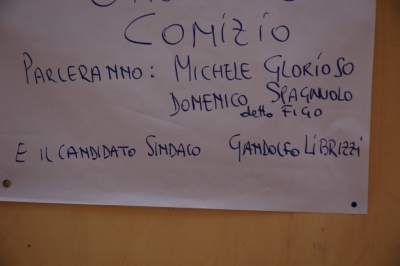 COMIZIO
PARLERANNO: MICHELE GLORIOSO
DOMENICO SPAGNUOLO
detto FIGO
E IL CANDIDATO SINDACO GANDOLFO LIBRIZZI